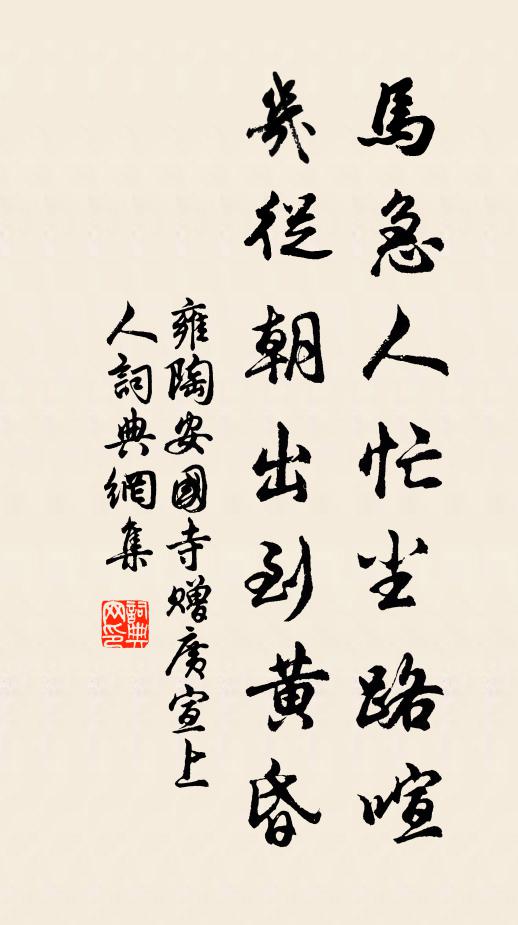 馬急人忙尘路喧
幾從朝出到黃昏
雍陶安國寺赠廣宣上
人詞典網集
詞典
网印